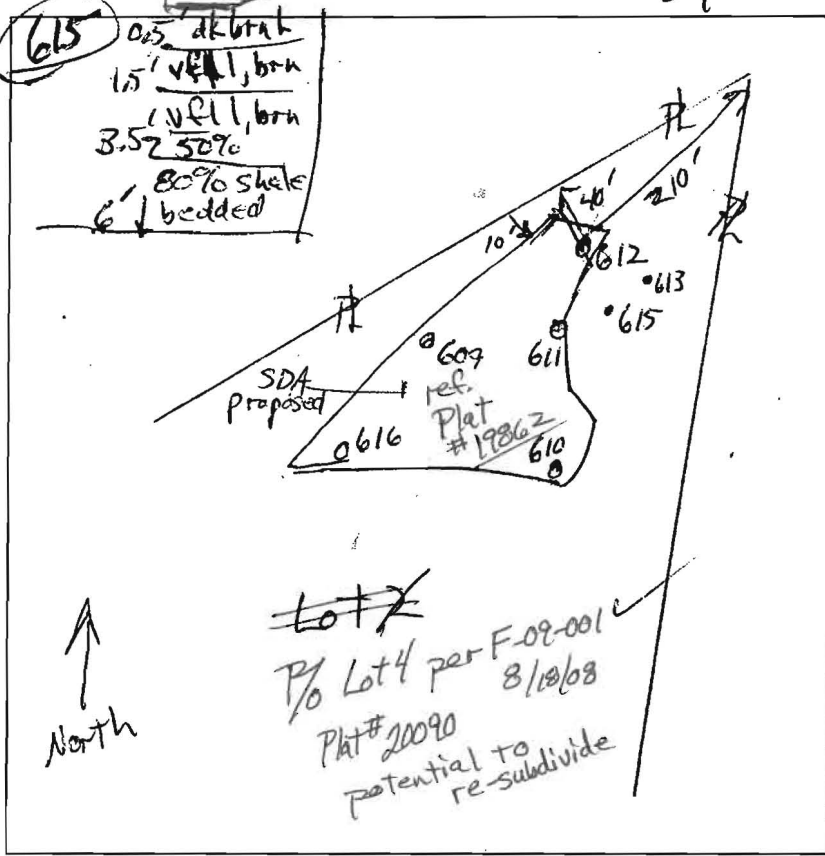 615
0.5' dk brn l
1.5' vfl l, brn
vfl l, brn
3.5' 50%
80% shale
6' ↓ bedded
PL
210'
PL
40'
10'
612
613
615
PL
609
611
SDA
proposed
ref.
Plat
#19862
616
610
Lot 2
P/o Lot 4 per F-09-001 ✓
8/18/08
Plat# 20090
potential to
re-subdivide
North